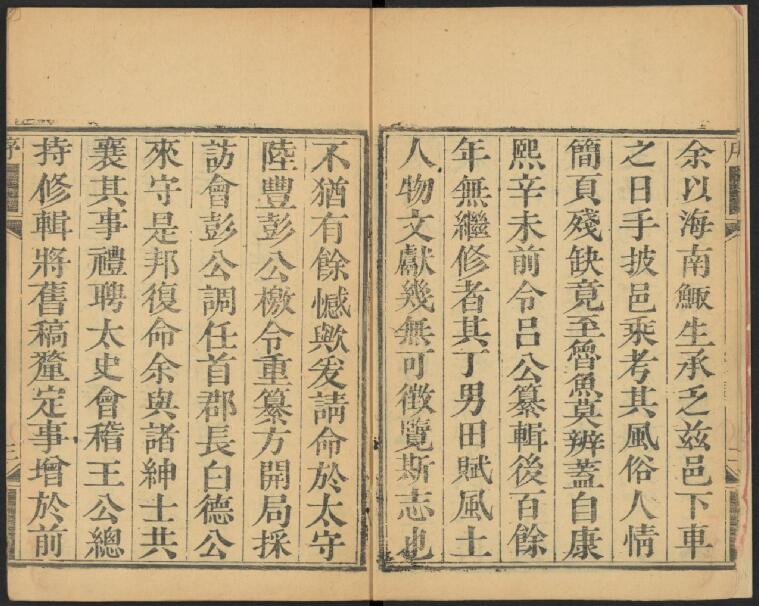 余以海南鯫生承乏兹邑下車
之日手披邑乘考其風俗人情
簡頁殘缺竟至魯魚莫辨蓋自康
熙辛未前令呂公纂輯後百餘
年無繼修者其丁男田賦風土
人物文獻幾無可徵覽斯志也
不猶有餘憾歟爰請命於太守
陸豐彭公檄令重纂方開局採
訪會彭公調任首郡長白德公
來守是邦復命余與諸紳士共
襄其事禮聘太史會稽王公總
持修輯將舊稿釐定事增於前
序
三